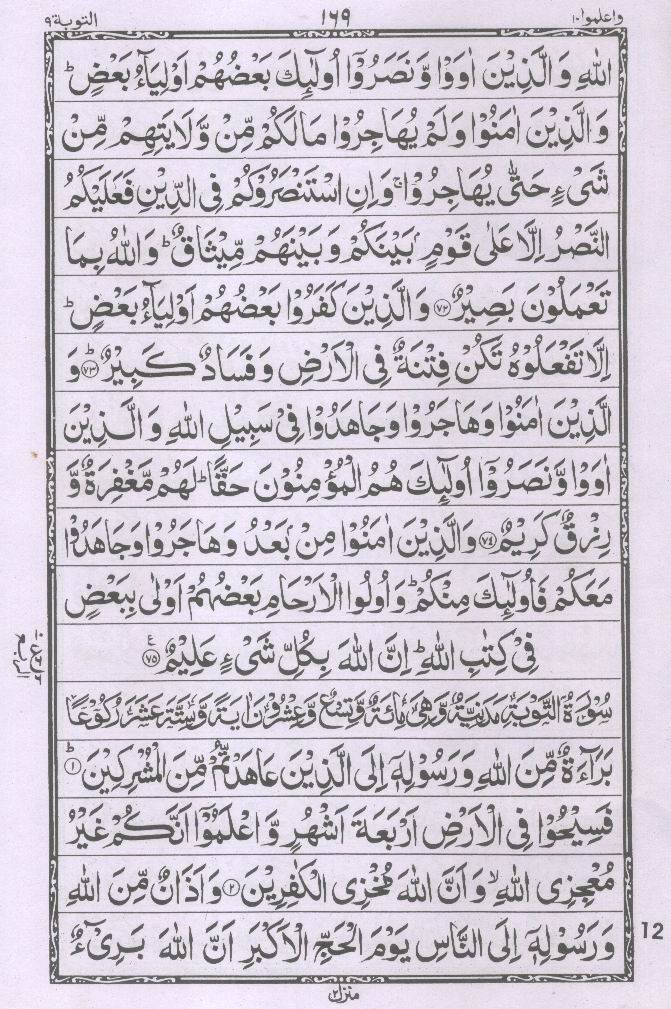 واعلموا۱۰ ۱۶۹ التوبة۹
اللهِ وَالَّذِيْنَ اٰوَوْا وَّنَصَرُوْۤا اُولٰٓئِكَ بَعْضُهُمْ اَوْلِيَآءُ بَعْضٍ ؕ
وَالَّذِيْنَ اٰمَنُوْا وَلَمْ يُهَاجِرُوْا مَا لَكُمْ مِّنْ وَّلَايَتِهِمْ مِّنْ
شَىْءٍ حَتّٰى يُهَاجِرُوْا ۚ وَاِنِ اسْتَنْصَرُوْكُمْ فِى الدِّيْنِ فَعَلَيْكُمُ
النَّصْرُ اِلَّا عَلٰى قَوْمٍۭ بَيْنَكُمْ وَبَيْنَهُمْ مِّيْثَاقٌ ؕ وَاللهُ بِمَا
تَعْمَلُوْنَ بَصِيْرٌ ﴿۷۲﴾ وَالَّذِيْنَ كَفَرُوْا بَعْضُهُمْ اَوْلِيَآءُ بَعْضٍ ؕ
اِلَّا تَفْعَلُوْهُ تَكُنْ فِتْنَةٌ فِى الْاَرْضِ وَفَسَادٌ كَبِيْرٌ ﴿۷۳﴾ؕ وَ
الَّذِيْنَ اٰمَنُوْا وَهَاجَرُوْا وَجَاهَدُوْا فِىْ سَبِيْلِ اللهِ وَالَّذِيْنَ
اٰوَوْا وَّنَصَرُوْۤا اُولٰٓئِكَ هُمُ الْمُؤْمِنُوْنَ حَقًّا ؕ لَهُمْ مَّغْفِرَةٌ وَّ
رِزْقٌ كَرِيْمٌ ﴿۷۴﴾ وَالَّذِيْنَ اٰمَنُوْا مِنْۢ بَعْدُ وَهَاجَرُوْا وَجَاهَدُوْا
مَعَكُمْ فَاُولٰٓئِكَ مِنْكُمْ ؕ وَاُولُوا الْاَرْحَامِ بَعْضُهُمْ اَوْلٰى بِبَعْضٍ
فِىْ كِتٰبِ اللهِ ؕ اِنَّ اللهَ بِكُلِّ شَىْءٍ عَلِيْمٌ ﴿۷۵﴾ ع
سُوْرَةُ التَّوْبَةِ مَدَنِيَّةٌ وَّهِىَ مِائَةٌ وَّتِسْعٌ وَّعِشْرُوْنَ اٰيَةً وَّسِتَّةَ عَشَرَ رُكُوْعًا
بَرَآءَةٌ مِّنَ اللهِ وَرَسُوْلِهٖۤ اِلَى الَّذِيْنَ عَاهَدْتُّمْ مِّنَ الْمُشْرِكِيْنَ ﴿۱﴾ؕ
فَسِيْحُوْا فِى الْاَرْضِ اَرْبَعَةَ اَشْهُرٍ وَّاعْلَمُوْۤا اَنَّكُمْ غَيْرُ
مُعْجِزِى اللهِ ۙ وَاَنَّ اللهَ مُخْزِى الْكٰفِرِيْنَ ﴿۲﴾ وَاَذَانٌ مِّنَ اللهِ
وَرَسُوْلِهٖۤ اِلَى النَّاسِ يَوْمَ الْحَجِّ الْاَكْبَرِ اَنَّ اللهَ بَرِىْٓءٌ
12
منزل۲